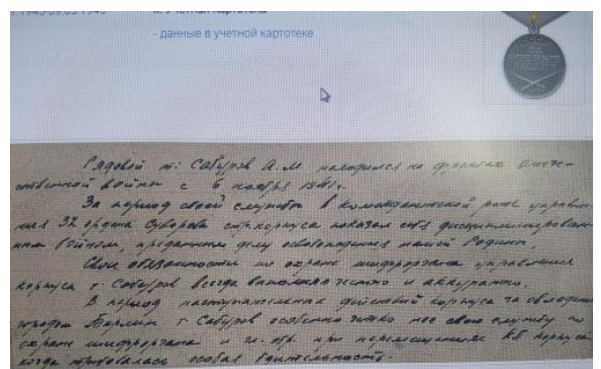 - данные в учетной картотеке
Рядовой т. Сабуров А.М. находился на фронтах Отече-
ственной войны с 6 ноября 1941г.
За период своей службы в комендантской роте управле-
ния 32 ордена Суворова стр.корпуса показал себя дисциплинирован-
ным бойцом, преданным делу освобождения нашей Родины.
Свои обязанности по охране шифроргана управления
корпуса т. Сабуров всегда выполнял четко и аккуратно.
В период наступательных действий корпуса за овладение
городом Берлин т. Сабуров особенно четко нес свою службу по
охране шифроргана и при перемещениях КП корпуса
когда требовалась особая бдительность.